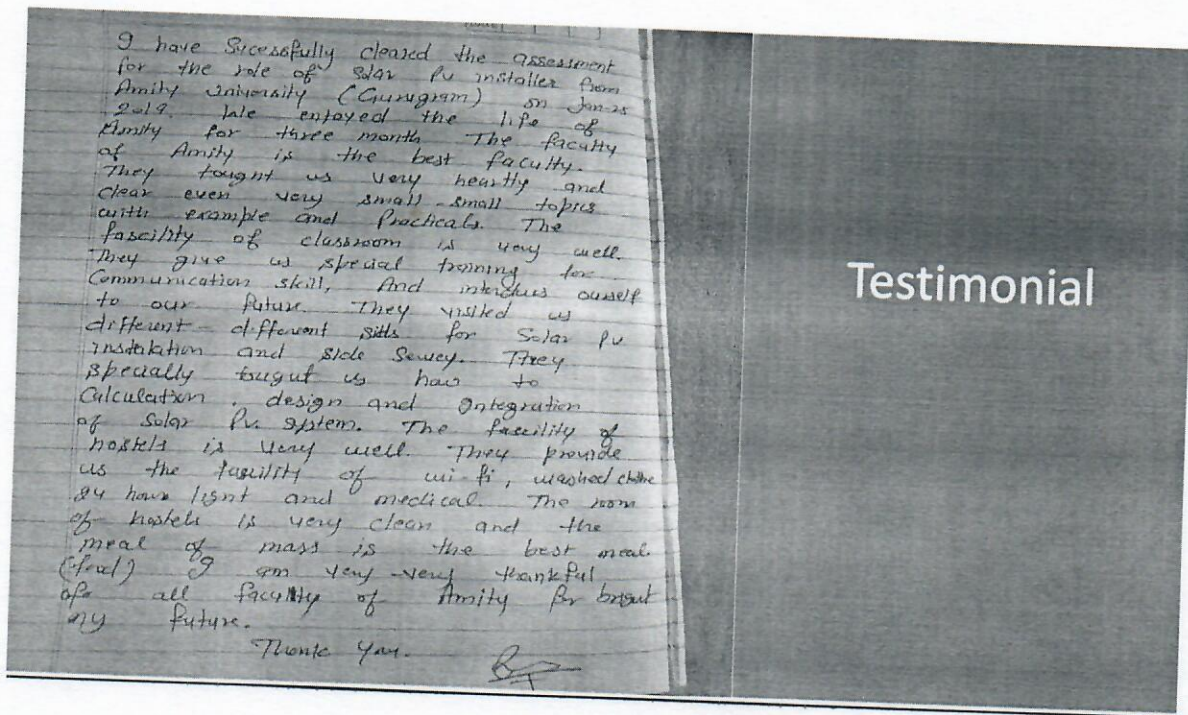 I have Sucessfully cleared the assessment
for the role of Solar Pv installer from
Amity University (Gurugram) on Jan-25
2019. We enjoyed the life of
Amity for three month The faculty
of Amity is the best faculty.
They tought us very heartly and
clear even very small-small topics
with example and Practicals. The
fascility of classroom is very well.
They give us special training for
Communication skill, And ourself
to our future. They visited us
different-different for Solar Pv
instalation and side They
specially us how to
Calculation, design and Integration
of Solar Pv. system. The fascility of
hostels is very well. They provide
us the of wi-fi, washed
24 hour light and medical. The room
of hostels is very clean and the
meal of mass is the best meal.
(food) I am very-very thankful
of all faculty of Amity for
my future.
Thank You.
Testimonial